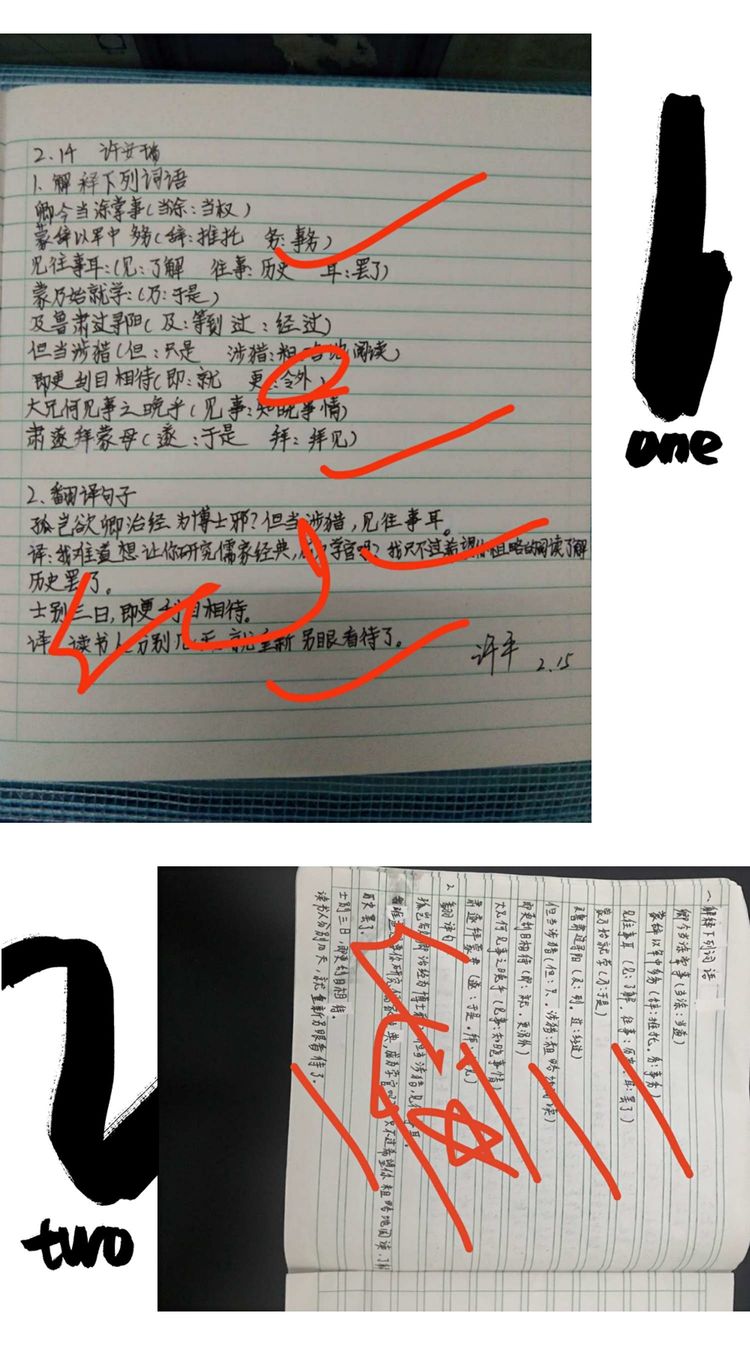 2.14 许安瑞
1、解释下列词语
卿今当涂掌事(当涂:当权)
蒙辞以军中多务(辞:推托 务:事务)
见往事耳:(见:了解 往事:历史 耳:罢了)
蒙乃始就学:(乃:于是)
及鲁肃过寻阳(及:等到 过:经过)
但当涉猎(但:只是 涉猎:粗 地阅读)
即更刮目相待(即:就 更:令外)
大兄何见事之晚乎(见事:知晓事情)
肃遂拜蒙母(遂:于是 拜:拜见)
2.翻译句子
孤岂欲卿治经为博士邪?但当涉猎,见往事耳。
译:我难道想让你研究儒家经典, 学官吗?我只不过希望你粗略的阅读了解
历史罢了。
士别三日,即更刮目相待。
译 读书人分别几天,就重新另眼看待了。
许平 2.15
one
一、解释下列词语
卿今当涂掌事(当涂:当道)
蒙辞以军中多务(辞:推托、务:事务)
见往事耳(见:了解、往事:历史、耳:罢了)
蒙乃始就学(乃:于是)
及鲁肃过寻阳(及:到、过:经过)
但当涉猎(但:只、涉猎:粗略地阅读)
即更刮目相待(即:就、更:另外)
大兄何见事之晚乎(见事:知晓事情)
肃遂拜蒙母(遂:于是、拜: 见)
2 翻译句
孤岂欲卿治经为博士 但当涉猎,见 事耳。
难道 要你研究儒家 典,成为学官吗 只不过希望你粗略地阅读,了解
历史罢了。
士别三日,即更刮目相待。
读书人分别几天,就重新另眼看待了。
two